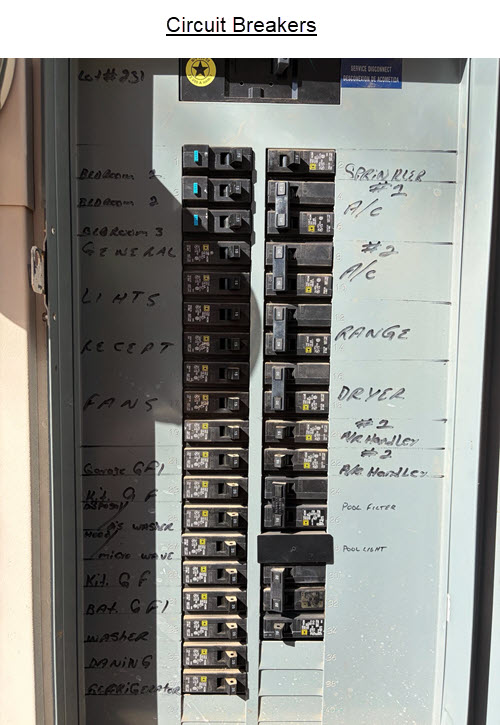 Circuit Breakers
Lot #231
SERVICE DISCONNECT
DESCONEXIÓN DE ACOMETIDA
BEDROOM
BEDROOM 2
BEDROOM 3
GENERAL
LIHTS
RECEPT
FANS
Garage GFI
Kit. G F
DISPOSAL
DIS WASHER
HOOD/
MICRO WAVE
Kit. G F
BAT. GFI
WASHER
DANING
REFRIGERATOR
SPRINKLER
#2
A/C
#2
A/C
RANGE
DRYER
#2
AIR HANDLER
#2
AIR HANDLER
POOL FILTER
POOL LIGHT